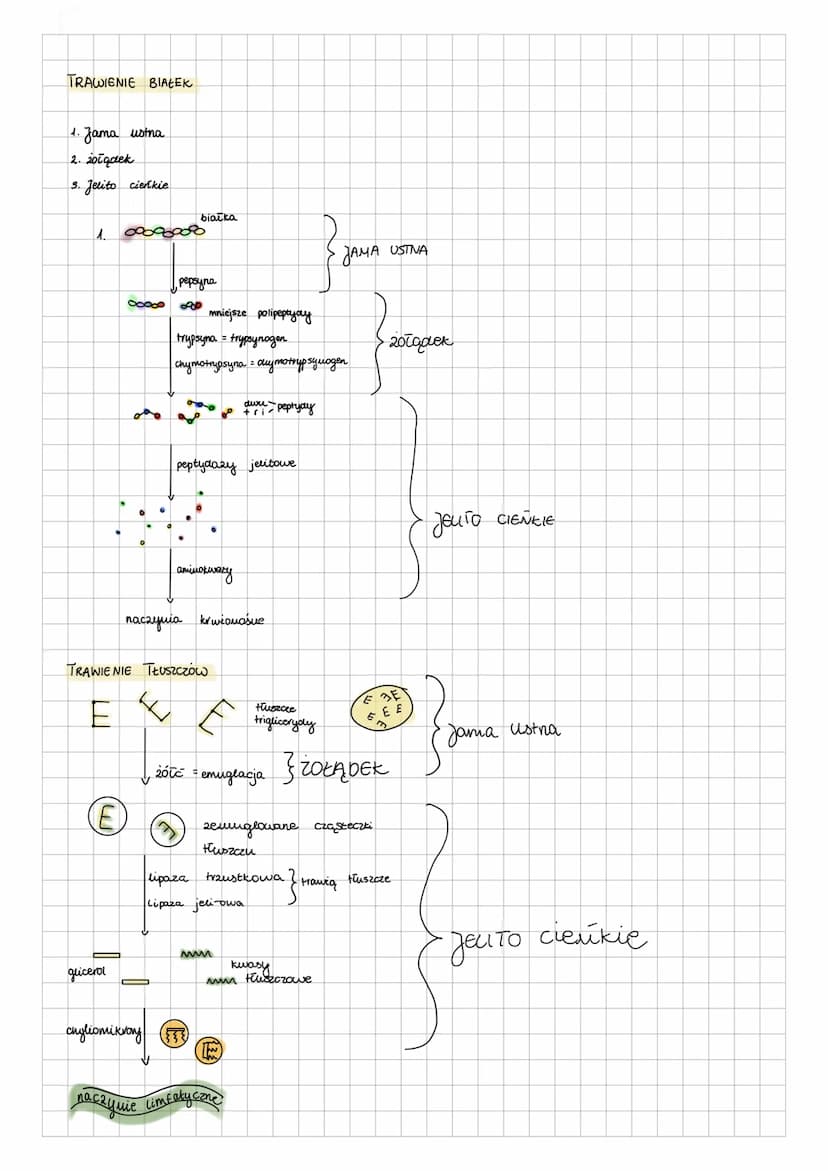 TRAWIENIE BIAŁEK
1. Jama ustna
2. żołądek
3. Jelito cieńkie
białka
1.
JAMA USTNA
pepsyna
mniejsze polipeptydy
trypsyna = trypsynogen
żołądek
chymotrypsyna = chymotrypsynogen
dwu - peptydy
tri -
peptydazy jelitowe
JELITO CIEŃKIE
aminokwasy
naczynia krwionośne
TRAWIENIE TŁUSZCZÓW
E E E
tłuszcze
triglicerydy
E E E
E E E
E
Jama ustna
żółć = emuglacja
ŻOŁĄDEK
E E
zemuglowane cząsteczki
tłuszczu
lipaza trzustkowa
trawią tłuszcze
lipaza jelitowa
JELITO cieńkie
glicerol
kwasy
tłuszczowe
chyliomikrony
naczynie limfatyczne